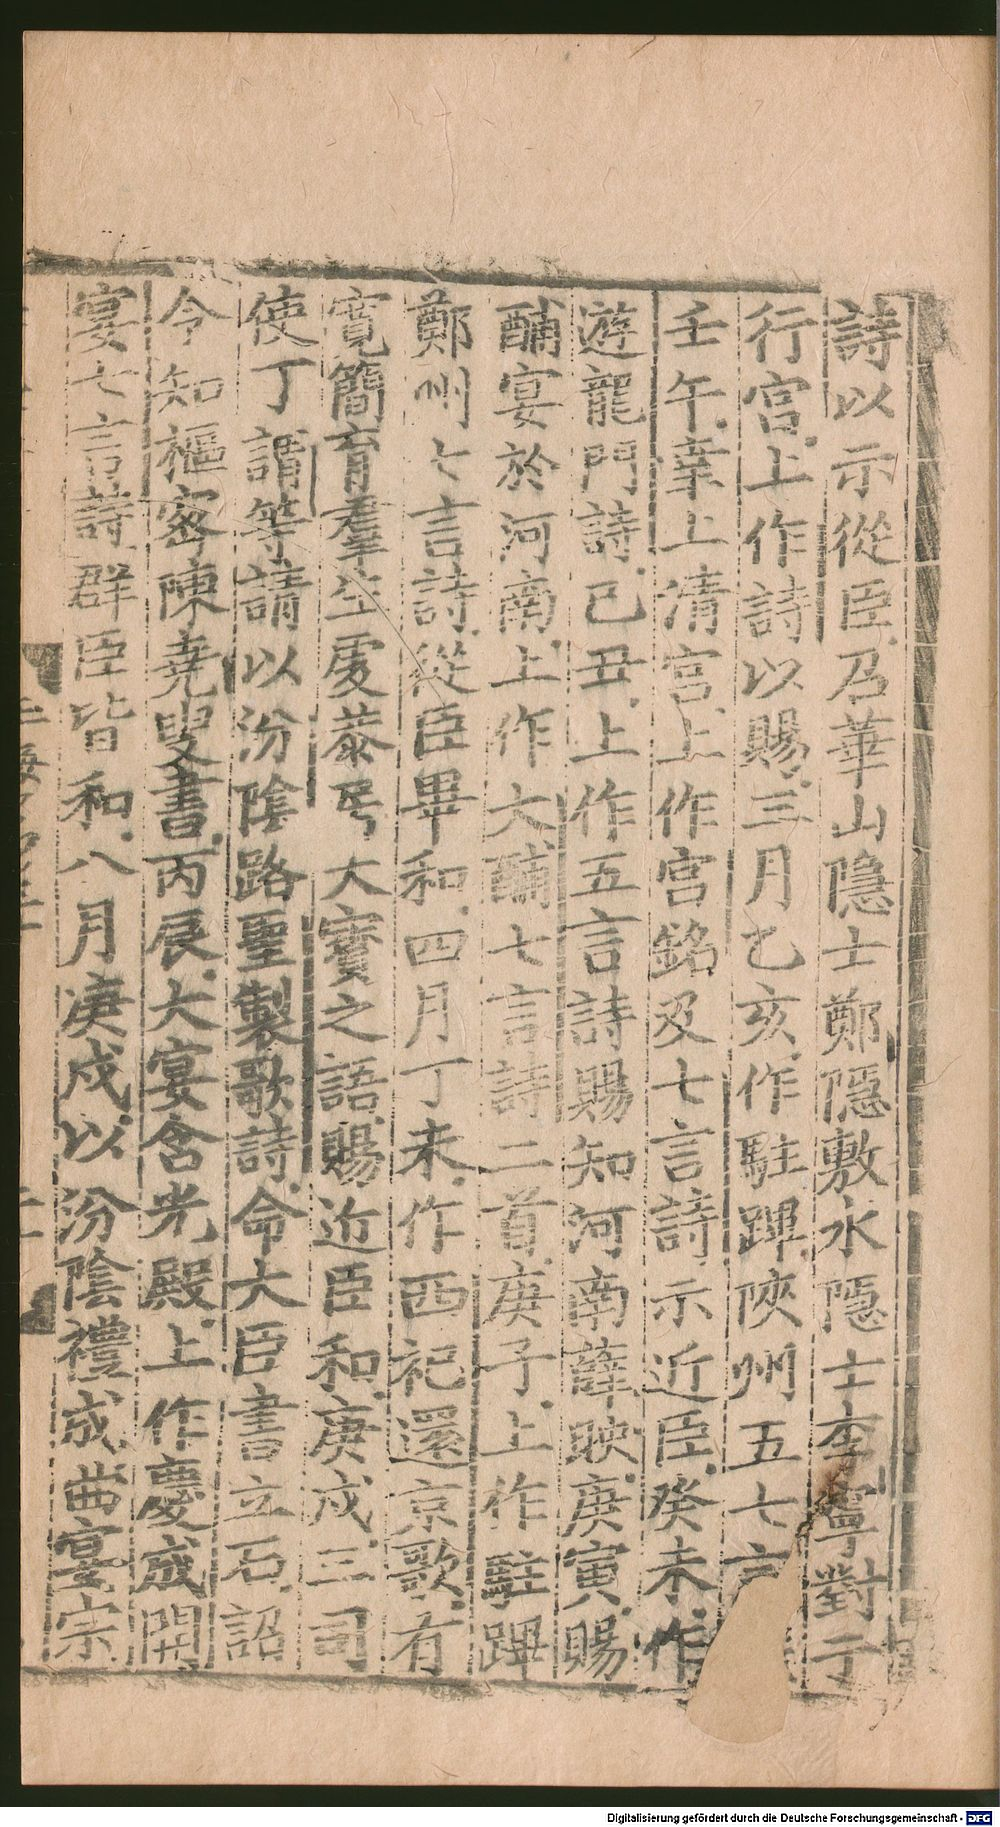 詩以示從臣召華山隱士鄭隱敷水隱士李寧對于
行宮上作詩以賜三月乙亥作駐蹕陝州五七言
壬午幸上清宮上作宮銘及七言詩示近臣癸未作
遊龍門詩己丑上作五言詩賜知河南薛映庚寅賜
酺宴於河南上作大酺七言詩二首庚子上作駐蹕
鄭州七言詩從臣畢和四月丁未作西祀還京歌有
寬簡育羣生處恭丐大寶之語賜近臣和庚戌三司
使丁謂等請以汾陰路聖製歌詩命大臣書立石詔
令知樞密陳堯叟書丙辰大宴含光殿上作慶成開
宴七言詩群臣皆和八月庚戌以汾陰禮成曲宴宗
Digitalisierung gefördert durch die Deutsche Forschungsgemeinschaft - DFG